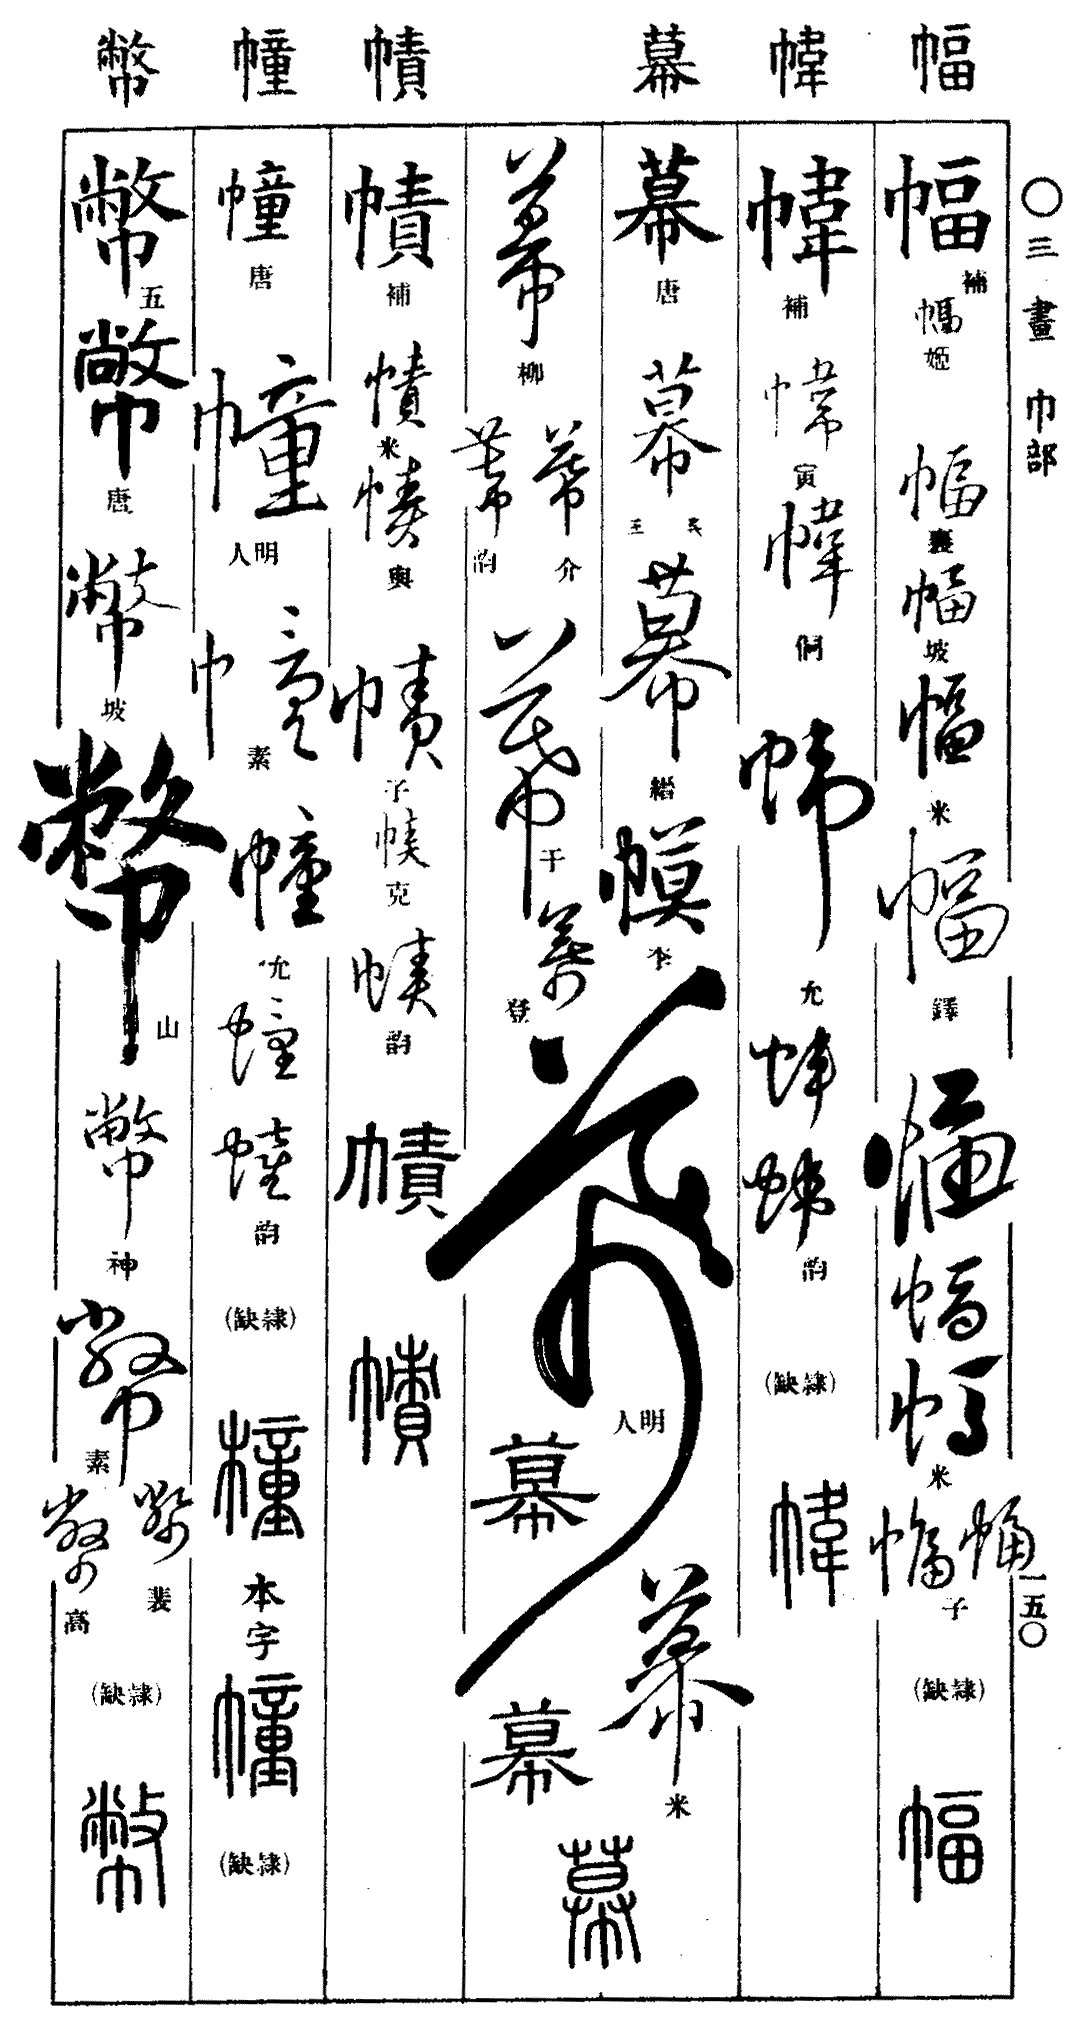 幅 幃 幕 幘 幢 幣
〇三畫 巾部
一五〇
幅 補
幅 姬
幅 襄
幅 坡
幅 米
幅 鐸
幅
幅
幅 米
幅 幅 子
(缺隸)
幅
幃 補
幃 寅
幃 侗
幃 允
幃
幃 韵
(缺隸)
幃
幕 唐
幕 王
幕 縉
幕 李
幕 米
幕 柳
幕 介
幕 韵
幕 于
幕 登
幕 明人
幕
幕
幕
幘 補
幘 米
幘 輿
幘 子
幘 克
幘 韵
幘
幘
幢 唐
幢 明人
幢 素
幢 允
幢
幢 韵
(缺隸)
橦
本字
幢
(缺隸)
幣 五
幣 唐
幣 坡
幣 山
幣 神
幣 素
幣 裴
幣 高
(缺隸)
幣